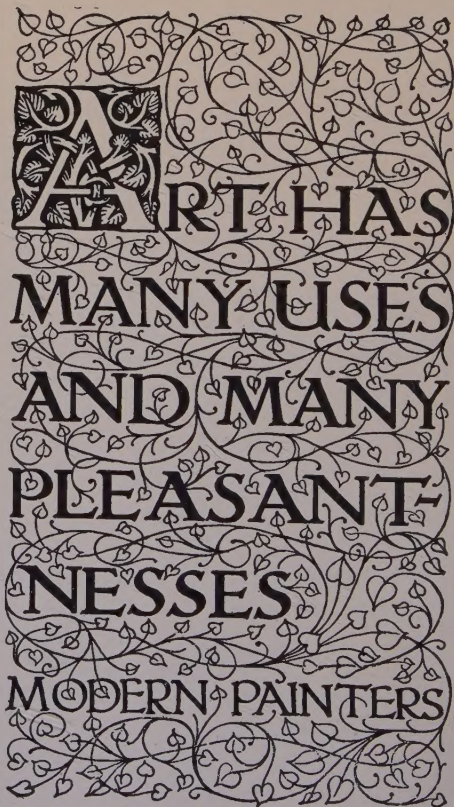 ART HAS
MANY USES
AND MANY
PLEASANT-
NESSES
MODERN PAINTERS